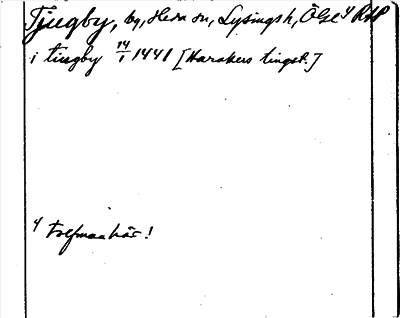 Tjugby, by, Heda sn, Lysingsh, Ögl 4 RAP
i tiugby 14/1 1441 [Harakers tingst.]
4 Tolfmanhär!